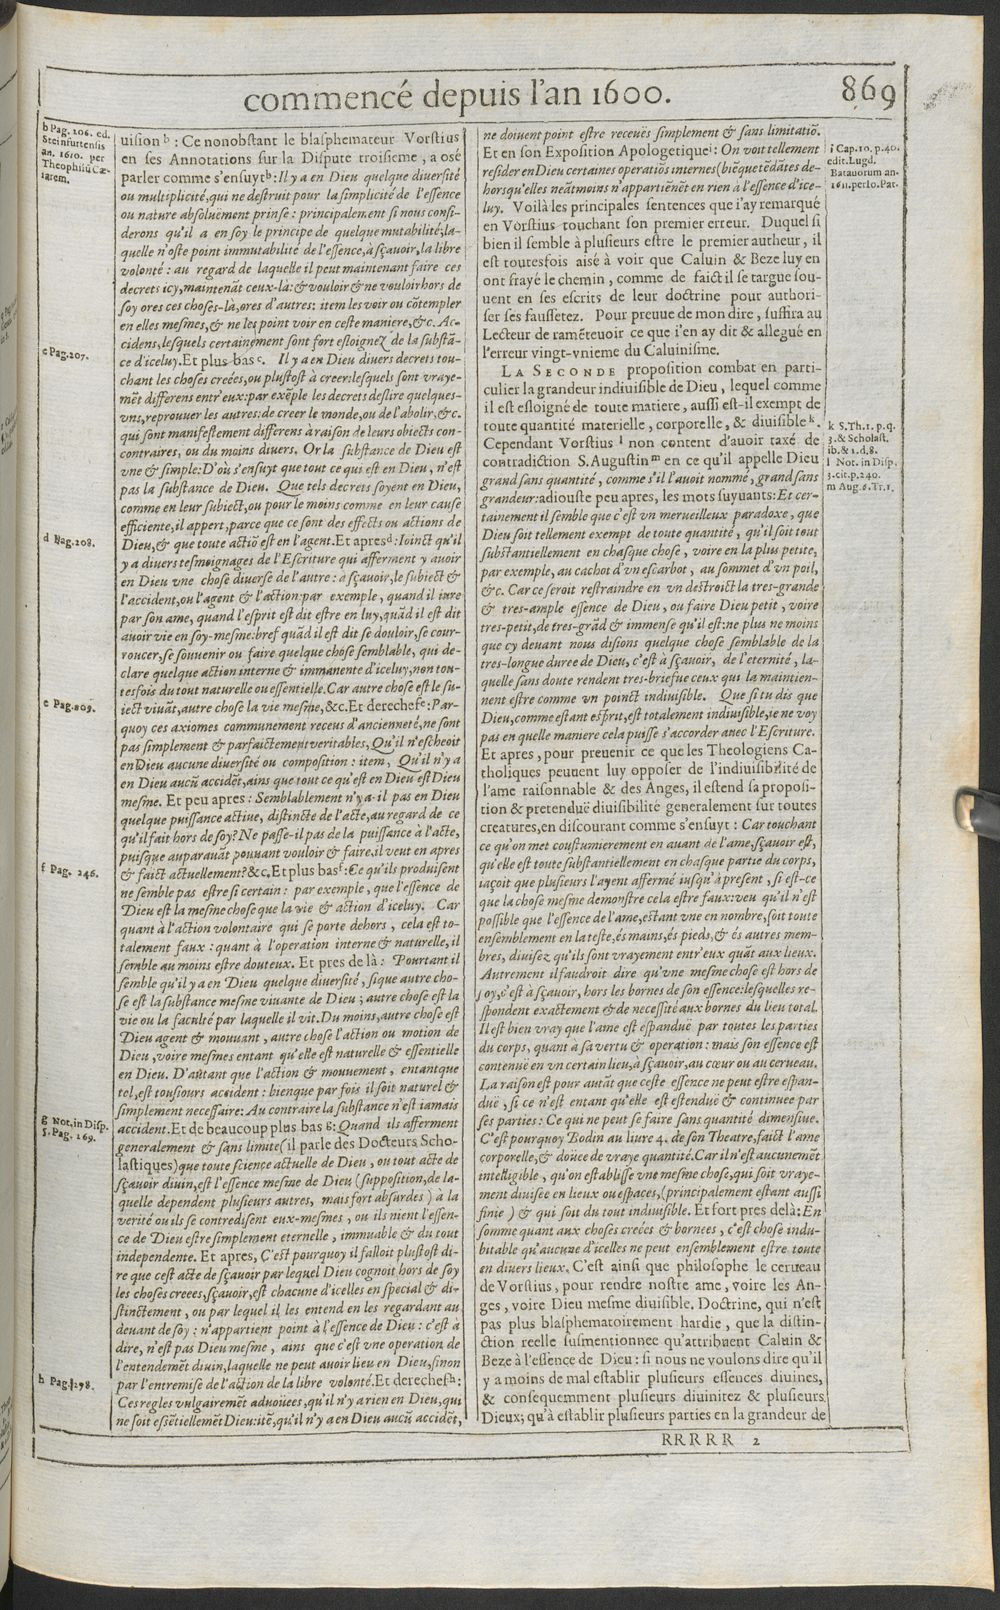 commencé depuis l'an 1600.
869
b Pag. 106. ed.
Steinfurtensis
an. 1610. per
Theophilũ Cæ-
sarem.
uision b : Ce nonobstant le blasphemateur Vorstius
en ses Annotations sur la Dispute troisieme, a osé
parler comme s'ensuyt b: Il y a en Dieu quelque diuersité
ou multiplicité, qui ne destruit pour la simplicité de l'essence
ou nature absoluëment prinse : principalement si nous consi-
derons qu'il a en soy le principe de quelque mutabilité, la-
quelle n'oste point immutabilité de l'essence, à sçauoir, la libre
volonté : au regard de laquelle il peut maintenant faire ces
decrets icy, maintenãt ceux-là: & vouloir & ne vouloir hors de
soy ores ces choses-là, ores d'autres: item les voir ou cõtempler
en elles mesmes, & ne les point voir en ceste maniere, &c. Ac-
cidens, lesquels certainement sont fort esloignez de la substã-
c Pag. 207.
ce d'iceluy. Et plus bas c. Il y a en Dieu diuers decrets tou-
chant les choses creées, ou plustost à creer: lesquels sont vraye-
mẽt differens entr'eux: par exẽple les decrets d'eslire quelques-
vns, reprouuer les autres: de creer le monde, ou de l'abolir, &c.
qui sont manifestement differens à raison de leurs obiects con-
contraires, ou du moins diuers. Or la substance de Dieu est
vne & simple: D'où s'ensuyt que tout ce qui est en Dieu, n'est
pas la substance de Dieu. Que tels decrets soyent en Dieu,
comme en leur subiect, ou pour le moins comme en leur cause
efficiente, il appert, parce que ce sont des effects ou actions de
d Pag. 208.
Dieu, & que toute actiõ est en l'agent. Et apres d: Ioinct qu'il
y a diuers tesmoignages de l'Escriture qui afferment y auoir
en Dieu vne chose diuerse de l'autre : à sçauoir, le subiect &
l'accident, ou l'agent & l'action: par exemple, quand il iure
par son ame, quand l'esprit est dit estre en luy, quãd il est dit
auoir vie en soy-mesme: bref quãd il est dit se douloir, se cour-
roncer, se souuenir ou faire quelque chose semblable, qui de-
clare quelque action interne & immanente d'iceluy, non tou-
tesfois du tout naturelle ou essentielle. Car autre chose est le su-
e Pag. 209.
iect viuãt, autre chose la vie mesme, &c. Et derechef e: Par-
quoy ces axiomes communement receus d'ancienneté, ne sont
pas simplement & parfaictement veritables, Qu'il n'escheoit
en Dieu aucune diuersité ou composition : item, Qu'il n'y a
en Dieu aucũ accidẽt, ains que tout ce qu'est en Dieu est Dieu
mesme. Et peu apres : Semblablement n'y a-il pas en Dieu
quelque puissance actiue, distincte de l'acte, au regard de ce
qu'il fait hors de soy? Ne passe-il pas de la puissance à l'acte,
puisque auparauãt pouuant vouloir & faire, il veut en apres
f Pag. 246.
& faict actuellement? &c. Et plus bas f: Ce qu'ils produisent
ne semble pas estre si certain : par exemple, que l'essence de
Dieu est la mesme chose que la vie & action d'iceluy. Car
quant à l'action volontaire qui se porte dehors, cela est to-
talement faux : quant à l'operation interne & naturelle, il
semble au moins estre douteux. Et pres de là : Pourtant il
semble qu'il y a en Dieu quelque diuersité, si que autre cho-
se est la substance mesme viuante de Dieu ; autre chose est la
vie ou la faculté par laquelle il vit. Du moins, autre chose est
Dieu agent & mouuant, autre chose l'action ou motion de
Dieu, voire mesmes entant qu'elle est naturelle & essentielle
en Dieu. D'autant que l'action & mouuement, entantque
tel, est tousiours accident : bienque par fois il soit naturel &
simplement necessaire: Au contraire la substance n'est iamais
g Not. in Disp.
5. Pag. 169.
accident. Et de beaucoup plus bas g: Quand ils afferment
generalement & sans limite (il parle des Docteurs Scho-
lastiques) que toute science actuelle de Dieu, ou tout acte de
sçauoir diuin, est l'essence mesme de Dieu (supposition, de la-
quelle dependent plusieurs autres, mais fort absurdes) à la
verité ou ils se contredisent eux-mesmes, ou ils nient l'essen-
ce de Dieu estre simplement eternelle, immuable & du tout
independente. Et apres, C'est pourquoy il falloit plustost di-
re que cest acte de sçauoir par lequel Dieu cognoit hors de soy
les choses creees, sçauoir, est chacune d'icelles en special & di-
stinctement, ou par lequel il les entend en les regardant au
deuant de soy : n'appartient point à l'essence de Dieu : c'est à
dire, n'est pas Dieu mesme, ains que c'est vne operation de
l'entendemẽt diuin, laquelle ne peut auoir lieu en Dieu, sinon
h Pag. 278.
par l'entremise de l'action de la libre volonté. Et derechef h:
Ces regles vulgairemẽt aduoüees, qu'il n'y a rien en Dieu, qui
ne soit essẽtiellemẽt Dieu: itẽ, qu'il n'y a en Dieu aucũ accidẽt,
ne doiuent point estre receuës simplement & sans limitatiõ.
Et en son Exposition Apologetique i: On voit tellement
resider en Dieu certaines operatiõs internes (biẽ que tẽdãtes de-
hors qu'elles neãtmoins n'appartiẽnẽt en rien à l'essence d'ice-
luy. Voilà les principales sentences que i'ay remarqué
en Vorstius touchant son premier erreur. Duquel si
bien il semble à plusieurs estre le premier autheur, il
est toutesfois aisé à voir que Caluin & Beze luy en
ont frayé le chemin, comme de faict il se targue sou-
uent en ses escrits de leur doctrine pour authori-
ser ses faussetez. Pour preuue de mon dire, suffira au
Lecteur de ramẽteuoir ce que i'en ay dit & allegué en
l'erreur vingt-vnieme du Caluinisme.
i Cap. 10. p. 40.
edit. Lugd.
Batauorum an.
1611. per Io. Pat.
LA SECONDE proposition combat en parti-
culier la grandeur indiuisible de Dieu, lequel comme
il est esloigné de toute matiere, aussi est-il exempt de
toute quantité materielle, corporelle, & diuisible k.
Cependant Vorstius l non content d'auoir taxé de
contradiction S. Augustin m en ce qu'il appelle Dieu
grand sans quantité, comme s'il l'auoit nommé, grand sans
grandeur: adiouste peu apres, les mots suyuants: Et cer-
tainement il semble que c'est vn merueilleux paradoxe, que
Dieu soit tellement exempt de toute quantité, qu'il soit tout
substantiellement en chasque chose, voire en la plus petite,
par exemple, au cachot d'vn escarbot, au sommet d'vn poil,
&c. Car ce seroit restraindre en vn destroict la tres-grande
& tres-ample essence de Dieu, ou faire Dieu petit, voire
tres-petit, de tres-grãd & immense qu'il est: ne plus ne moins
que cy deuant nous disions quelque chose semblable de la
tres-longue duree de Dieu, c'est à sçauoir, de l'eternité, la-
quelle sans doute rendent tres-briefue ceux qui la maintien-
nent estre comme vn poinct indiuisible. Que si tu dis que
Dieu, comme estant esprit, est totalement indiuisible, ie ne voy
pas en quelle maniere cela puisse s'accorder auec l'Escriture.
Et apres, pour preuenir ce que les Theologiens Ca-
tholiques peuuent luy opposer de l'indiuisibilité de
l'ame raisonnable & des Anges, il estend sa proposi-
tion & pretenduë diuisibilité generalement sur toutes
creatures, en discourant comme s'ensuyt : Car touchant
ce qu'on met coustumierement en auant de l'ame, sçauoir est,
qu'elle est toute substantiellement en chasque partie du corps,
iaçoit que plusieurs l'ayent affermé iusqu'à present, si est-ce
que la chose mesme demonstre cela estre faux: veu qu'il n'est
possible que l'essence de l'ame, estant vne en nombre, soit toute
ensemblement en la teste, és mains, és pieds, & és autres mem-
bres, diuisez qu'ils sont vrayement entr'eux quãt aux lieux.
Autrement il faudroit dire qu'vne mesme chose est hors de
soy, c'est à sçauoir, hors les bornes de son essence: lesquelles re-
spondent exactement & de necessité aux bornes du lieu total.
Il est bien vray que l'ame est espanduë par toutes les parties
du corps, quant à sa vertu & operation : mais son essence est
contenuë en vn certain lieu, à sçauoir, au cœur ou au cerueau.
La raison est pour autãt que ceste essence ne peut estre espan-
duë, si ce n'est entant qu'elle est estenduë & continuee par
ses parties : Ce qui ne peut se faire sans quantité dimensiue.
C'est pourquoy Bodin au liure 4. de son Theatre, faict l'ame
corporelle, & doüee de vraye quantité. Car il n'est aucunemẽt
intelligible, qu'on establisse vne mesme chose, qui soit vraye-
ment diuisee en lieux ou espaces, (principalement estant aussi
finie) & qui soit du tout indiuisible. Et fort pres delà: En
somme quant aux choses creées & bornees, c'est chose indu-
bitable qu'aucune d'icelles ne peut ensemblement estre toute
en diuers lieux. C'est ainsi que philosophe le cerueau
de Vorstius, pour rendre nostre ame, voire les An-
ges, voire Dieu mesme diuisible. Doctrine, qui n'est
pas plus blasphematoirement hardie, que la distin-
ction reelle susmentionnee qu'attribuent Caluin &
Beze à l'essence de Dieu : si nous ne voulons dire qu'il
y a moins de mal establir plusieurs essences diuines,
& consequemment plusieurs diuinitez & plusieurs
Dieux; qu'à establir plusieurs parties en la grandeur de
k S. Th. 1. p. q.
3. & Scholast.
ib. & 1. d. 8.
l Not. in Disp.
3. cit. p. 240.
m Aug. 6. Tr. 1.
RRRRR 2